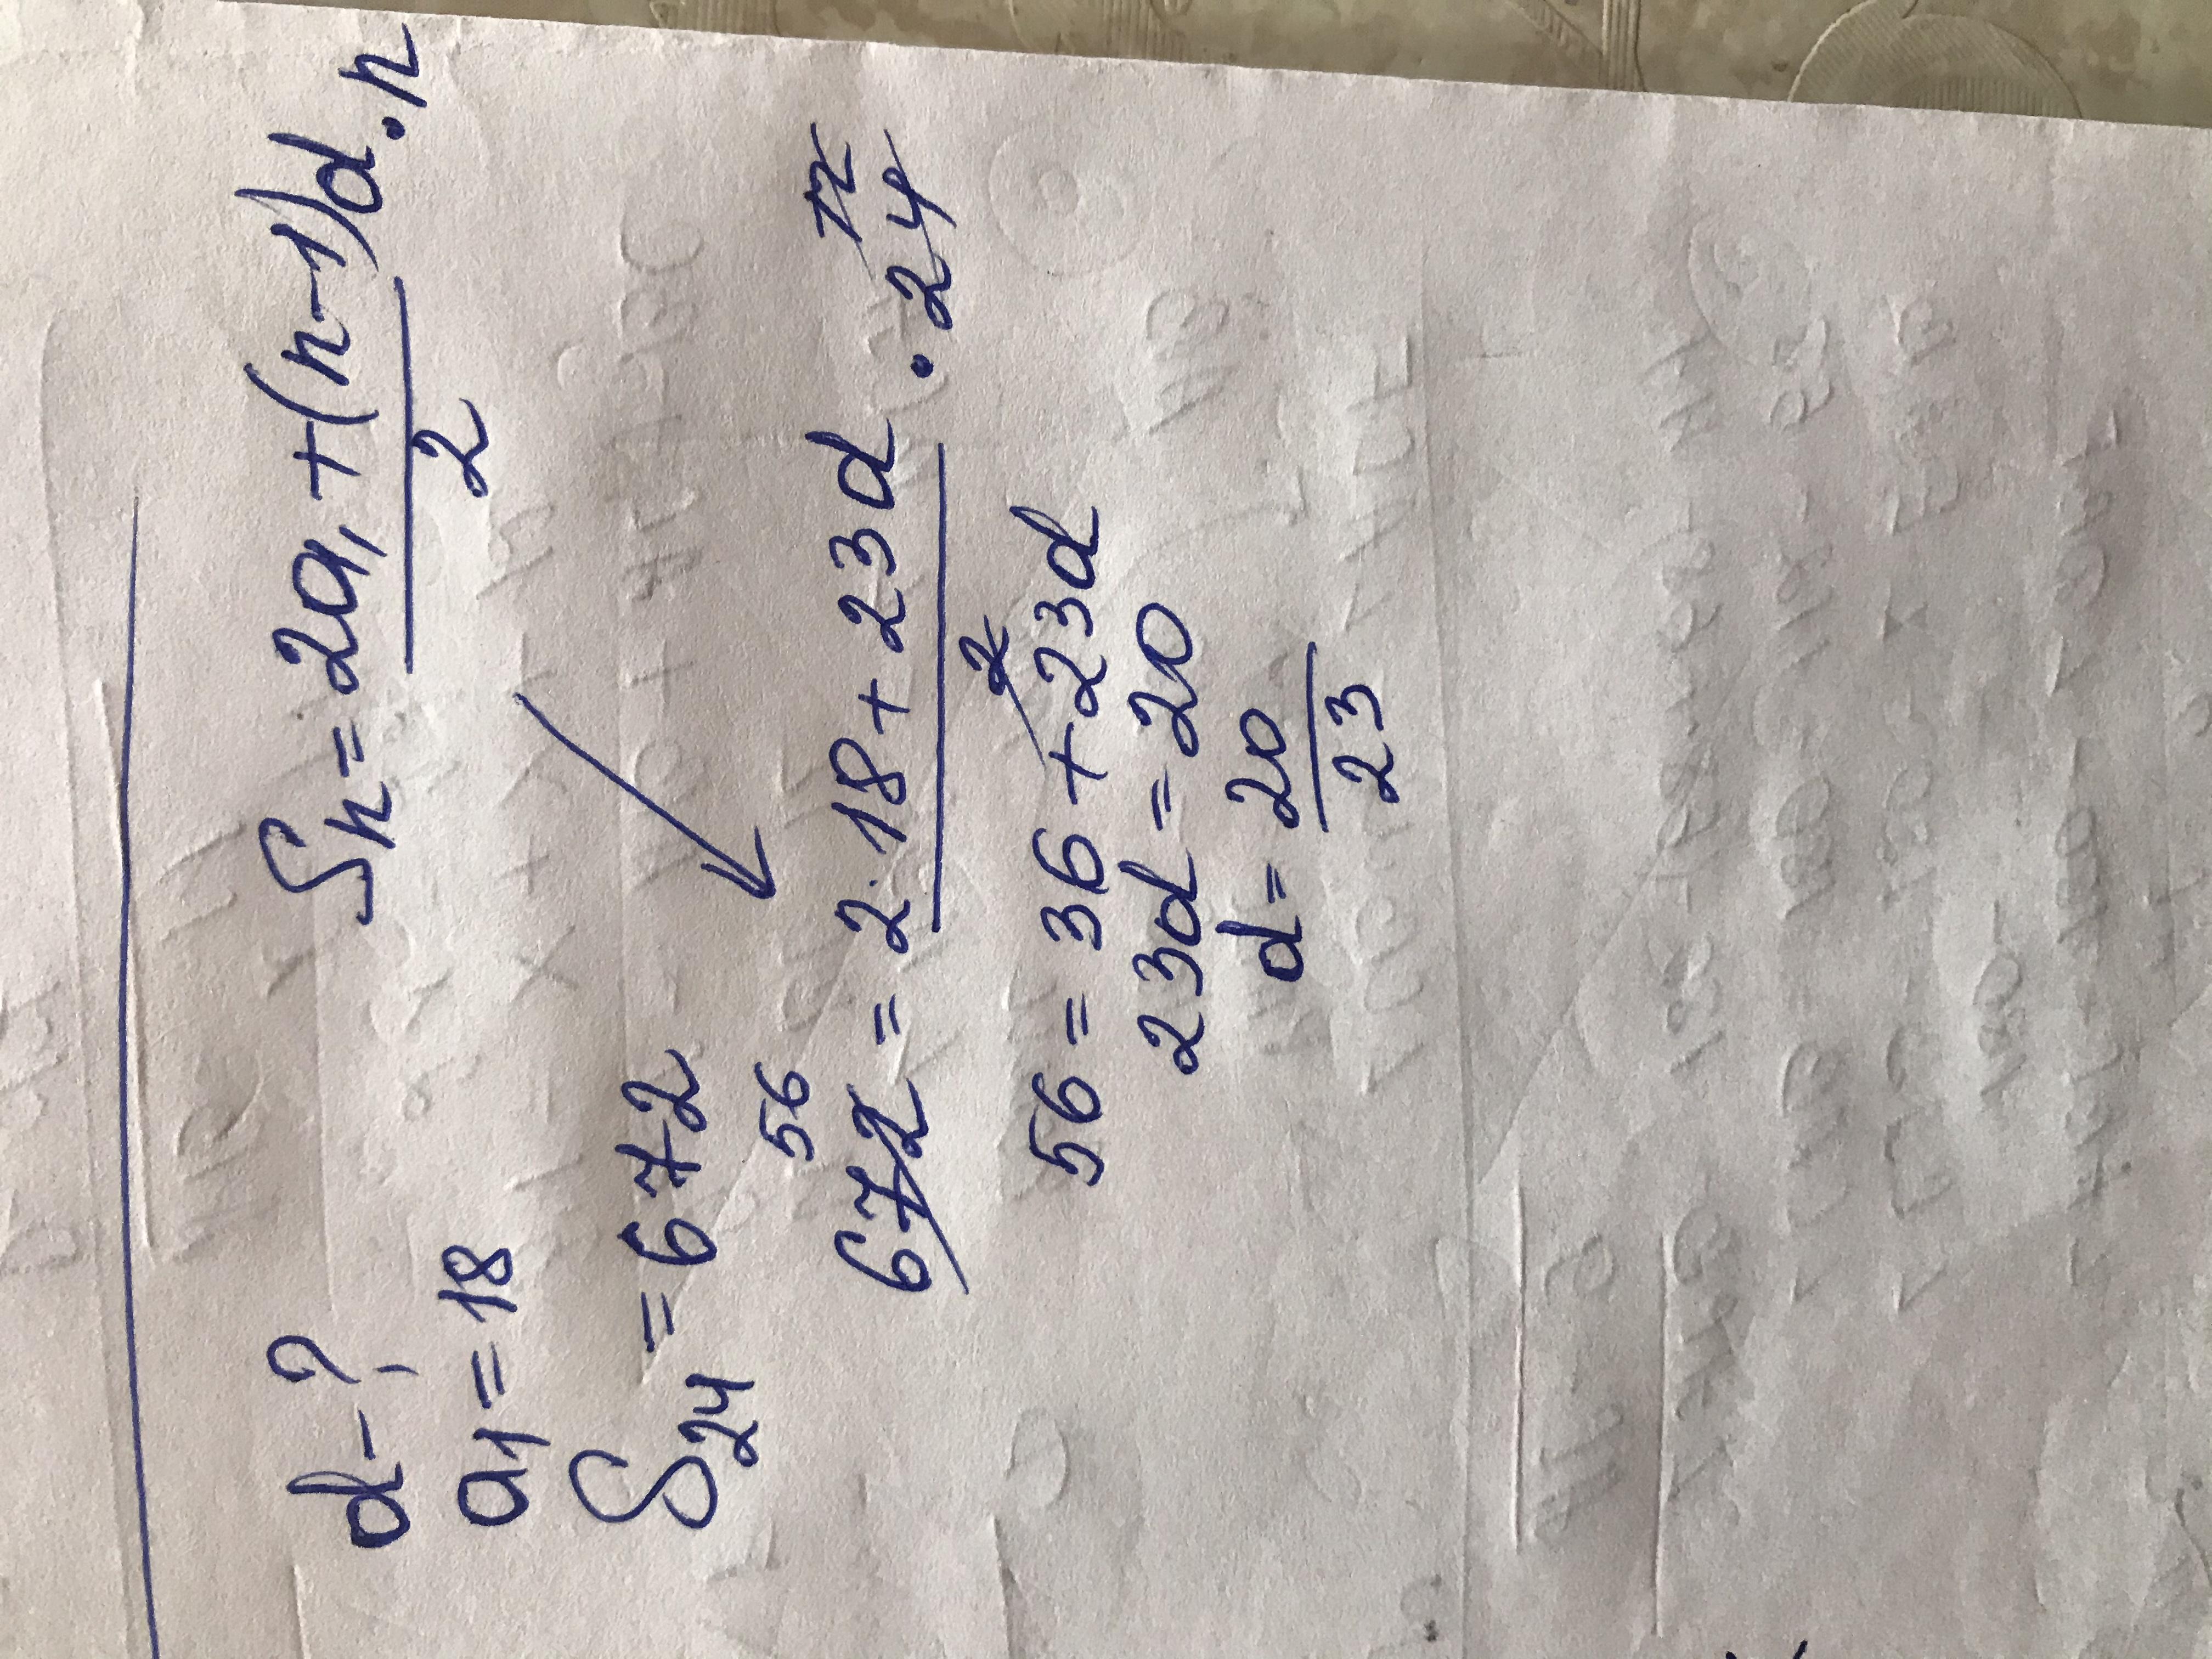 d-?
a₁=18
S₂₄=672
Sn=2a₁+(n-1)d·n
2
56
12
672=2·18+23d·24
2
56=36+23d
23d=20
d=20
23